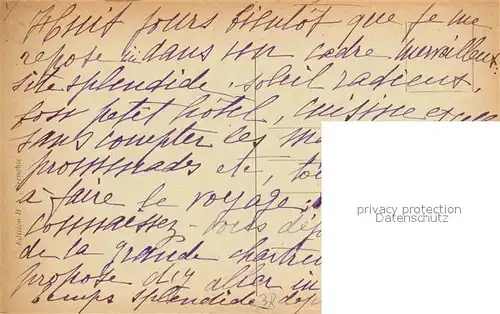 Huit jours bientôt que je me
repose ici dans un cadre merveilleux.
site splendide, soleil radieux,
bon petit hôtel, cuisine
sans compter les
promenades etc,
à faire le voyage
connaissez-vous
de la grande
propose d'y aller
temps splendide
privacy protection
Datenschutz
Edition
38